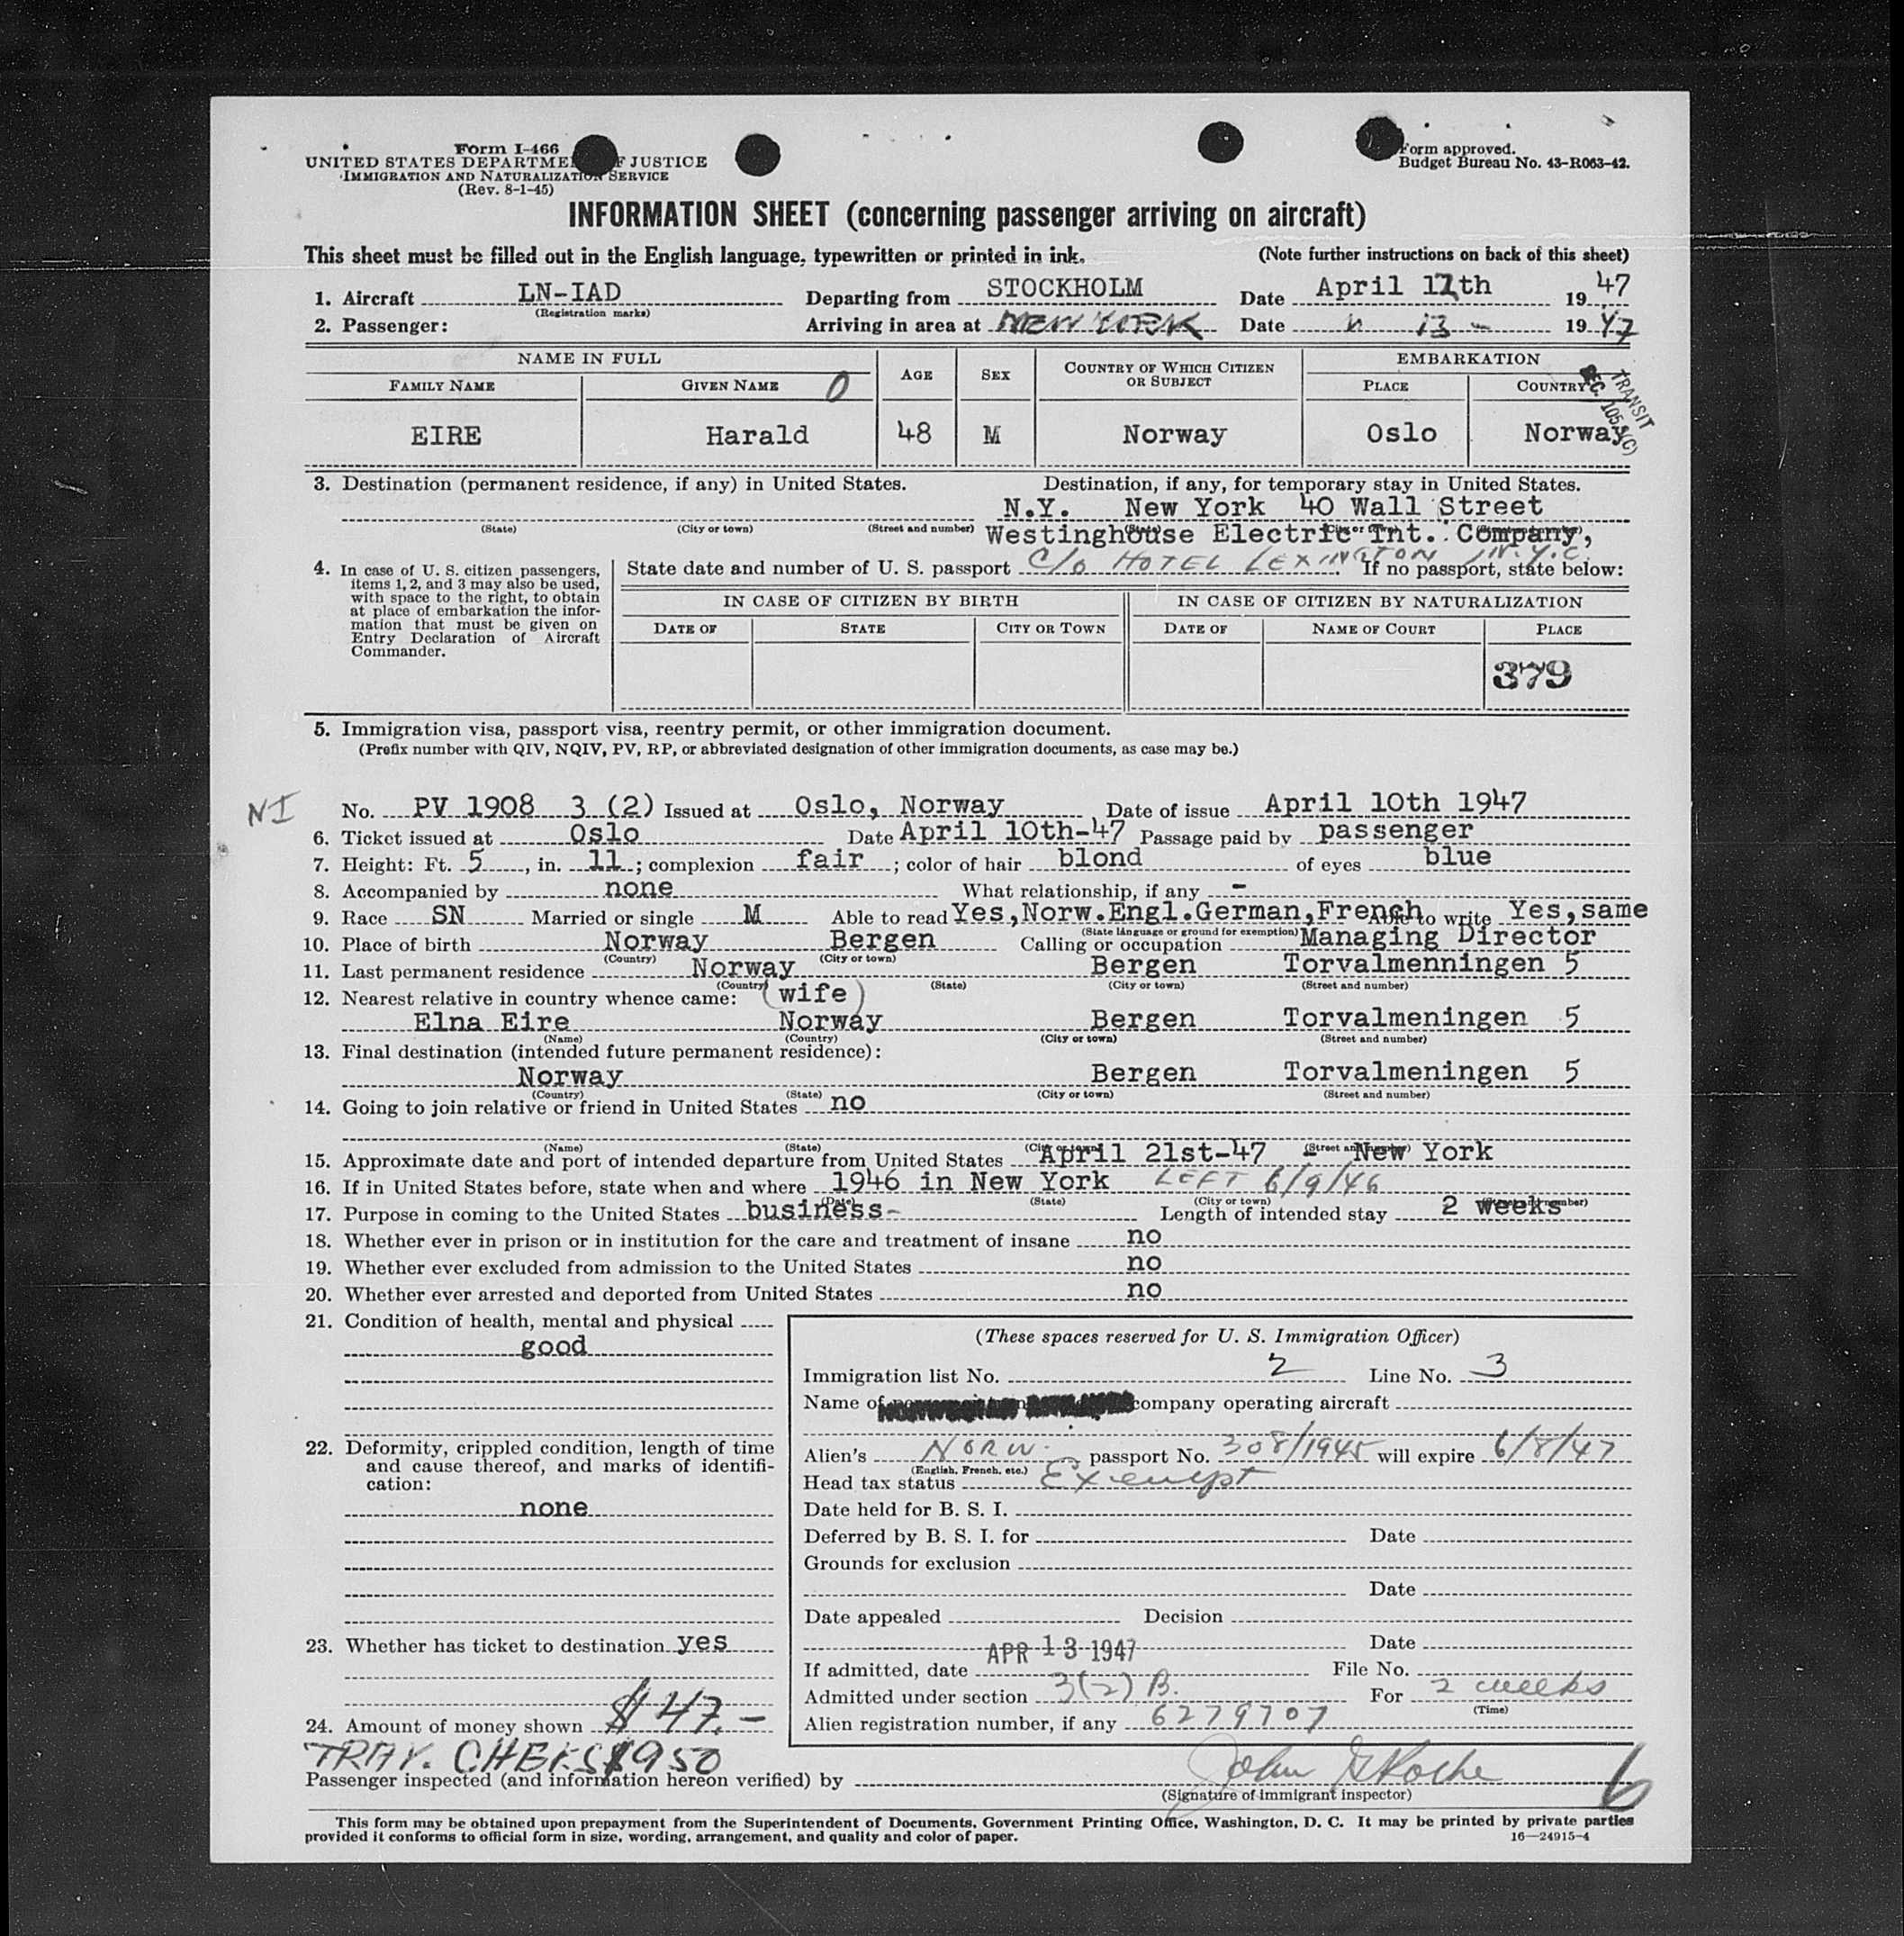 Form I-466
UNITED STATES DEPARTMENT OF JUSTICE
IMMIGRATION AND NATURALIZATION SERVICE
(Rev. 8-1-45)
Form approved.
Budget Bureau No. 43-R063-42.
INFORMATION SHEET (concerning passenger arriving on aircraft)
This sheet must be filled out in the English language, typewritten or printed in ink. (Note further instructions on back of this sheet)
1. Aircraft LN-IAD Departing from STOCKHOLM Date April 12th 1947
(Registration marks)
2. Passenger: Arriving in area at NEW YORK Date " 13 - 1947
NAME IN FULL AGE SEX COUNTRY OF WHICH CITIZEN OR SUBJECT EMBARKATION
FAMILY NAME GIVEN NAME O PLACE COUNTRY
TRANSIT
EIRE Harald 48 M Norway Oslo Norway
3. Destination (permanent residence, if any) in United States. Destination, if any, for temporary stay in United States.
N.Y. New York 40 Wall Street
(State) (City or town) (Street and number) Westinghouse Electric Int. Company,
4. In case of U. S. citizen passengers, items 1, 2, and 3 may also be used, with space to the right, to obtain at place of embarkation the information that must be given on Entry Declaration of Aircraft Commander.
State date and number of U. S. passport C/O HOTEL LEXINGTON N.Y.C. If no passport, state below:
IN CASE OF CITIZEN BY BIRTH IN CASE OF CITIZEN BY NATURALIZATION
DATE OF STATE CITY OR TOWN DATE OF NAME OF COURT PLACE
379
5. Immigration visa, passport visa, reentry permit, or other immigration document.
(Prefix number with QIV, NQIV, PV, RP, or abbreviated designation of other immigration documents, as case may be.)
NI No. PV 1908 3 (2) Issued at Oslo, Norway Date of issue April 10th 1947
6. Ticket issued at Oslo Date April 10th-47 Passage paid by passenger
7. Height: Ft. 5, in. 11; complexion fair; color of hair blond of eyes blue
8. Accompanied by none What relationship, if any -
9. Race SN Married or single M Able to read Yes,Norw.Engl.German,French Able to write Yes,same
(State language or ground for exemption)
10. Place of birth Norway Bergen Calling or occupation Managing Director
(Country) (City or town)
11. Last permanent residence Norway Bergen Torvalmenningen 5
(Country) (State) (City or town) (Street and number)
12. Nearest relative in country whence came: (wife)
Elna Eire Norway Bergen Torvalmeningen 5
(Name) (Country) (City or town) (Street and number)
13. Final destination (intended future permanent residence):
Norway Bergen Torvalmeningen 5
(Country) (State) (City or town) (Street and number)
14. Going to join relative or friend in United States no
(Name) (State) (City or town) (Street and number)
15. Approximate date and port of intended departure from United States April 21st-47 - New York
16. If in United States before, state when and where 1946 in New York LEFT 6/9/46
(Date) (State) (City or town) (Street and number)
17. Purpose in coming to the United States business- Length of intended stay 2 weeks
18. Whether ever in prison or in institution for the care and treatment of insane no
19. Whether ever excluded from admission to the United States no
20. Whether ever arrested and deported from United States no
21. Condition of health, mental and physical
good
22. Deformity, crippled condition, length of time and cause thereof, and marks of identification:
none
23. Whether has ticket to destination yes
24. Amount of money shown $47.-
TRAV. CHEKS $950
(These spaces reserved for U. S. Immigration Officer)
Immigration list No. 2 Line No. 3
Name of company operating aircraft
Alien's NORW. passport No. 308/1945 will expire 6/8/47
(English, French, etc.)
Head tax status Exempt
Date held for B. S. I.
Deferred by B. S. I. for Date
Grounds for exclusion
Date
Date appealed Decision
Date
If admitted, date APR 13 1947 File No.
Admitted under section 3(2) B. For 2 weeks
(Time)
Alien registration number, if any 6279707
Passenger inspected (and information hereon verified) by John 6
(Signature of immigrant inspector)
This form may be obtained upon prepayment from the Superintendent of Documents, Government Printing Office, Washington, D. C. It may be printed by private parties
provided it conforms to official form in size, wording, arrangement, and quality and color of paper. 16—24915-4